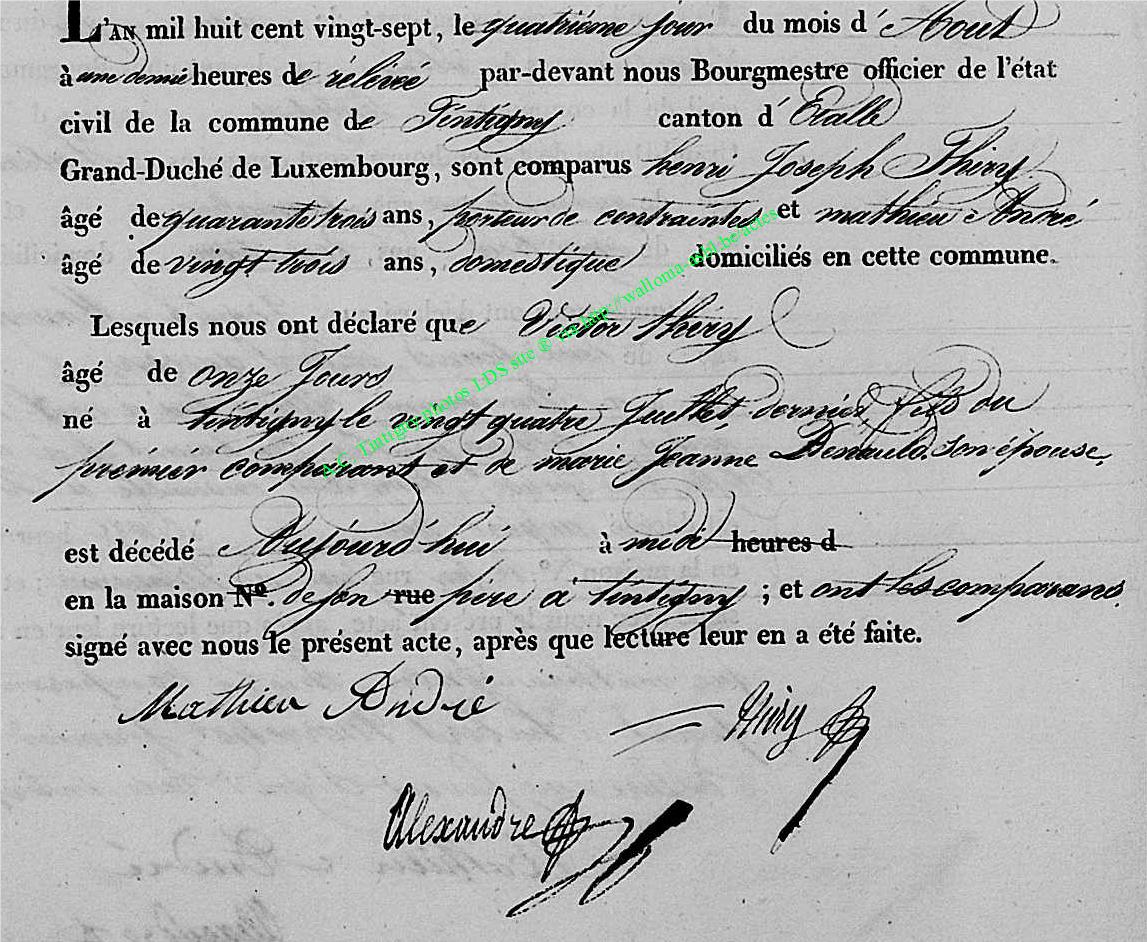 L'AN mil huit cent vingt-sept, le quatriéme jour du mois d'Aout
à une demie heures de rélévé par-devant nous Bourgmestre officier de l'état
civil de la commune de Tintigny canton d'Etalle
Grand-Duché de Luxembourg, sont comparus henri Joseph Thiry
âgé de quarante trois ans, porteur de contraintes et mathieu André
âgé de vingt trois ans, domestique domiciliés en cette commune.
Lesquels nous ont déclaré que Victor thiry
âgé de onze Jours
né à tintigny le vingt quatre Juillet dernier, fils du
prémier comparant et de marie Jeanne son épouse,
est décédé Aujourd'hui à midi heures d
en la maison N°. de son rue pére a tintigny ; et ont les comparans
signé avec nous le présent acte, après que lecture leur en a été faite.
Mathieu André
Thiry
Alexandre
A.C. Tintigny photos LDS site ® via http://wallonia-asbl.be/actes